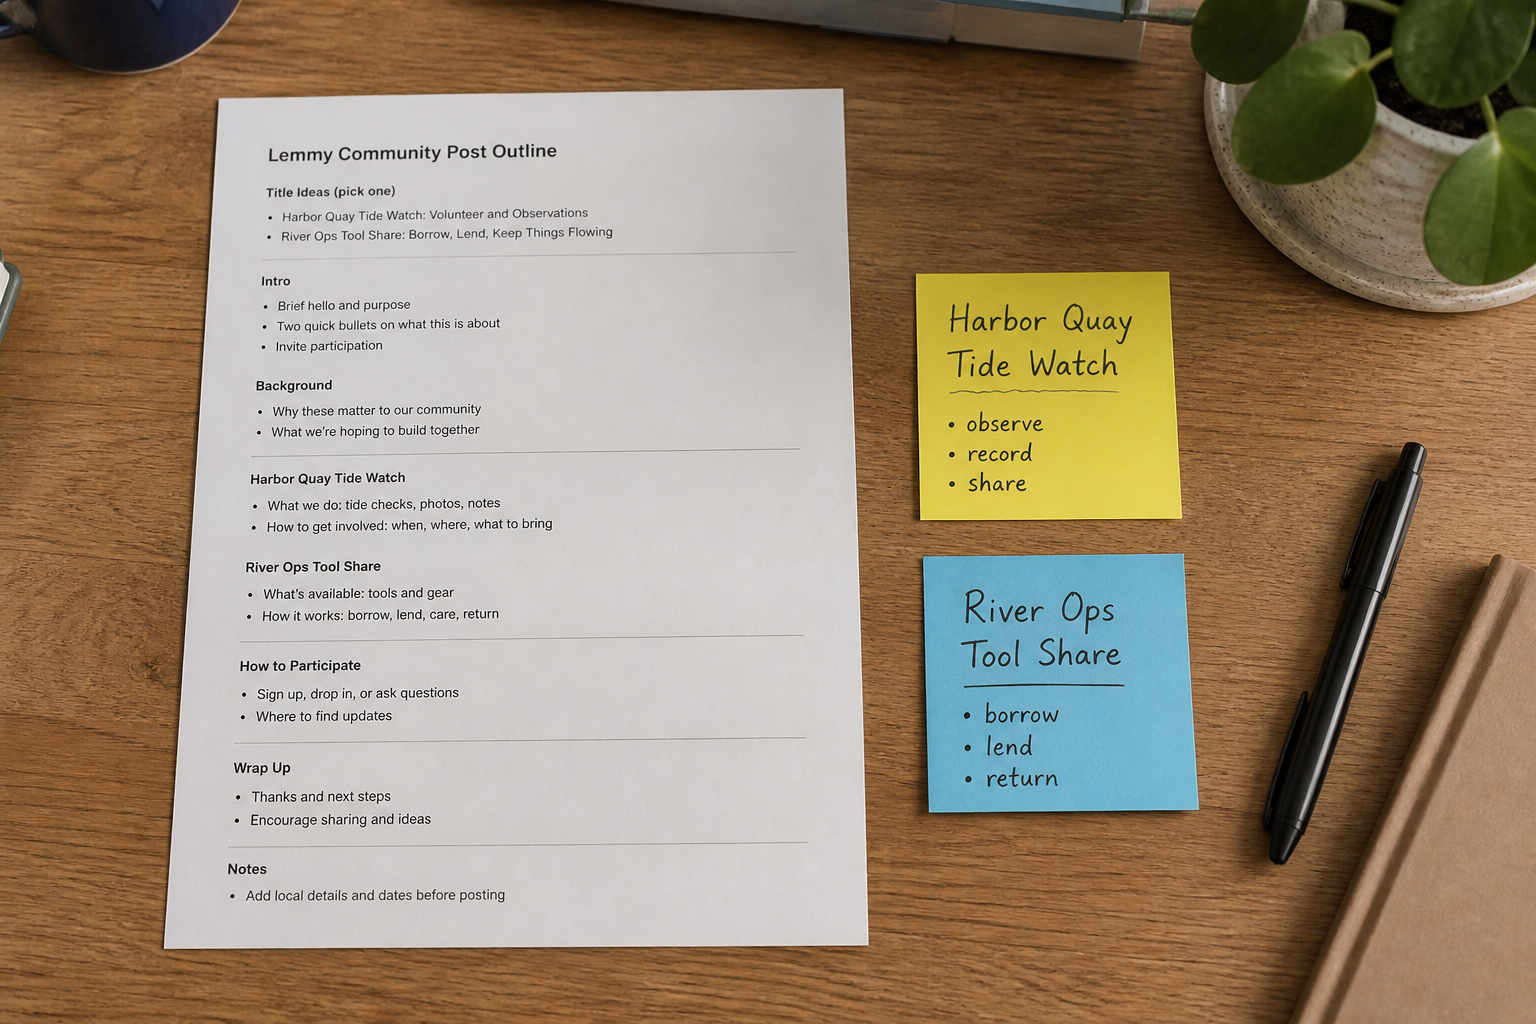 Lemmy Community Post Outline
Title Ideas (pick one)
• Harbor Quay Tide Watch: Volunteer and Observations
• River Ops Tool Share: Borrow, Lend, Keep Things Flowing
Intro
• Brief hello and purpose
• Two quick bullets on what this is about
• Invite participation
Background
• Why these matter to our community
• What we're hoping to build together
Harbor Quay Tide Watch
• What we do: tide checks, photos, notes
• How to get involved: when, where, what to bring
River Ops Tool Share
• What's available: tools and gear
• How it works: borrow, lend, care, return
How to Participate
• Sign up, drop in, or ask questions
• Where to find updates
Wrap Up
• Thanks and next steps
• Encourage sharing and ideas
Notes
• Add local details and dates before posting
Harbor Quay
Tide Watch
• observe
• record
• share
River Ops
Tool Share
• borrow
• lend
• return